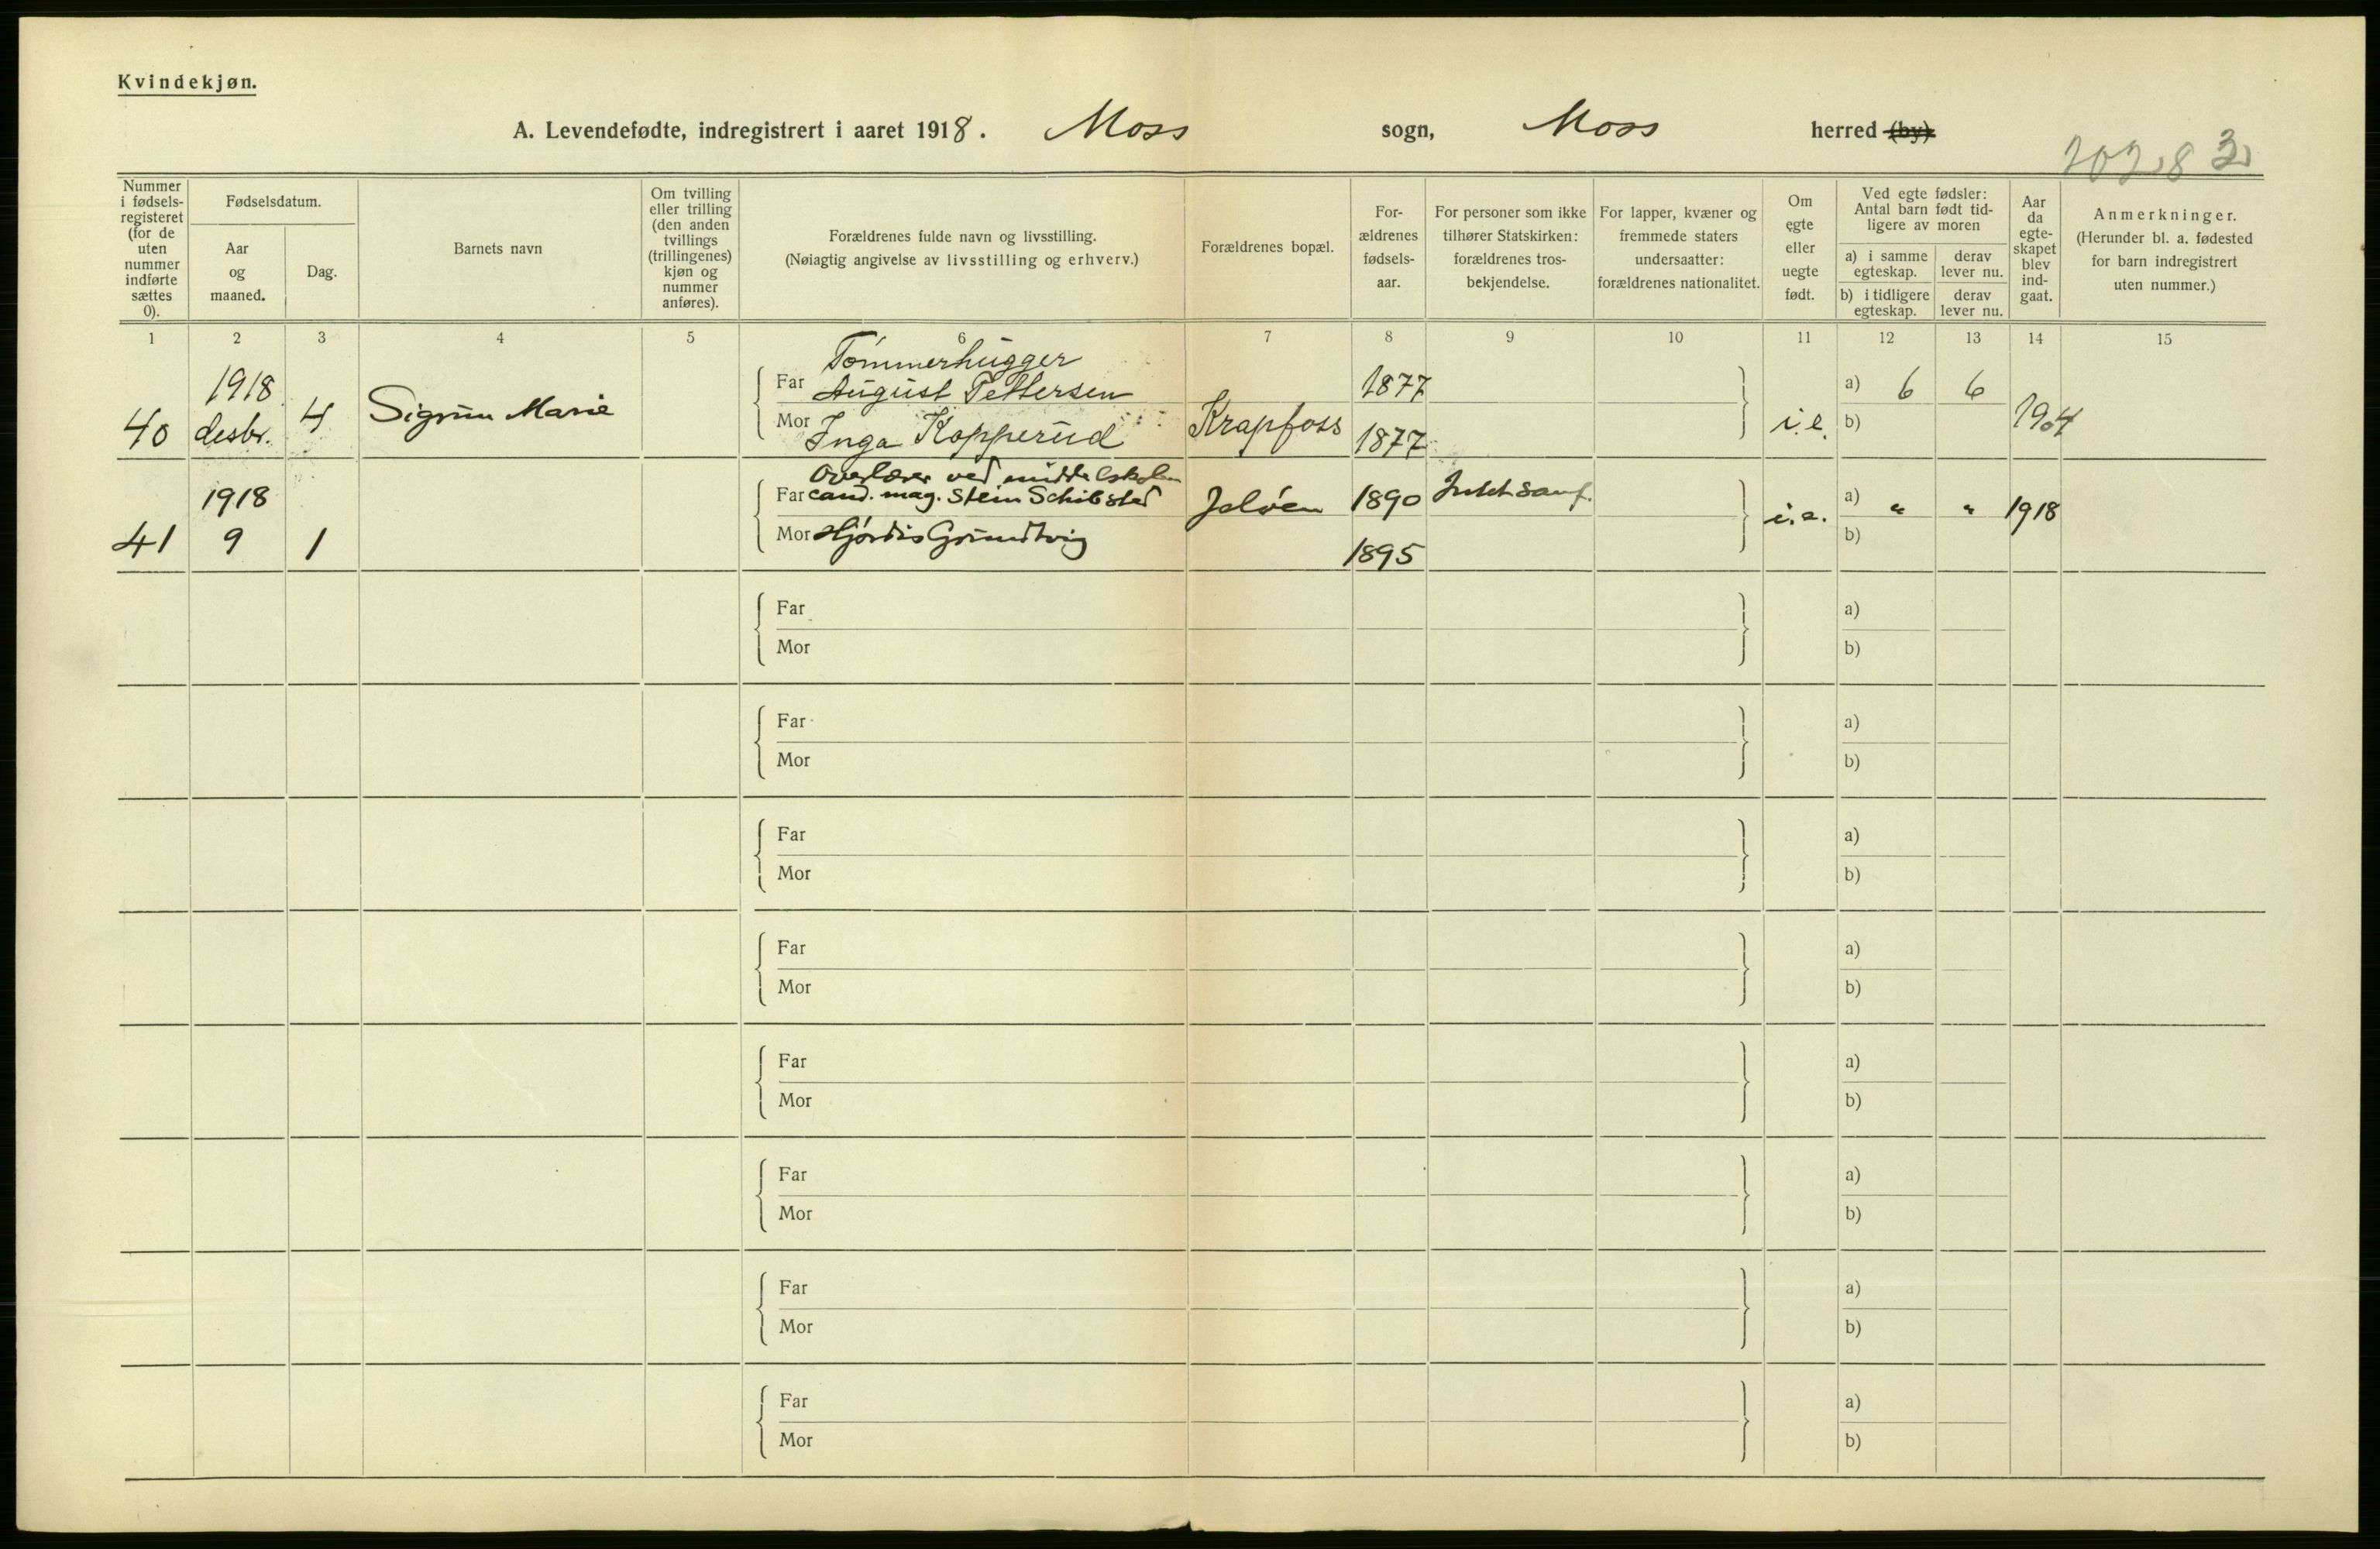 Kvindekjøn.
A. Levendefødte, indregistrert i aaret 1918. Moss sogn, Moss herred (by)
Nummer i fødsels-registeret (for de uten nummer indførte sættes 0).
Fødselsdatum.
Aar og maaned.
Dag.
Barnets navn
Om tvilling eller trilling (den anden tvillings (trillingenes) kjøn og nummer anføres).
Forældrenes fulde navn og livsstilling.
(Nøiagtig angivelse av livsstilling og erhverv.)
Forældrenes bopæl.
For-ældrenes fødsels-aar.
For personer som ikke tilhører Statskirken: forældrenes tros-bekjendelse.
For lapper, kvæner og fremmede staters undersaatter: forældrenes nationalitet.
Om egte eller uegte født.
Ved egte fødsler: Antal barn født tid-ligere av moren
a) i samme egteskap.
derav lever nu.
b) i tidligere egteskap.
derav lever nu.
Aar da egte-skapet blev ind-gaat.
Anmerkninger.
(Herunder bl. a. fødested for barn indregistrert uten nummer.)
1 2 3 4 5 6 7 8 9 10 11 12 13 14 15
Tømmerhugger
1918 Far August Pettersen 1877 a) 6 6
40 desbr. 4 Sigrun Marie Mor Inga Kopperud Krapfoss 1877 i.e. b) 1904
Overlærer ved middelskolen
1918 Far cand. mag. Stein Schibsted Jeløen 1890 a) " " 1918
41 9 1 Mor Hjørdis Grundtvig 1895 i.e. b)
Far a)
Mor b)
Far a)
Mor b)
Far a)
Mor b)
Far a)
Mor b)
Far a)
Mor b)
Far a)
Mor b)
Far a)
Mor b)
Far a)
Mor b)